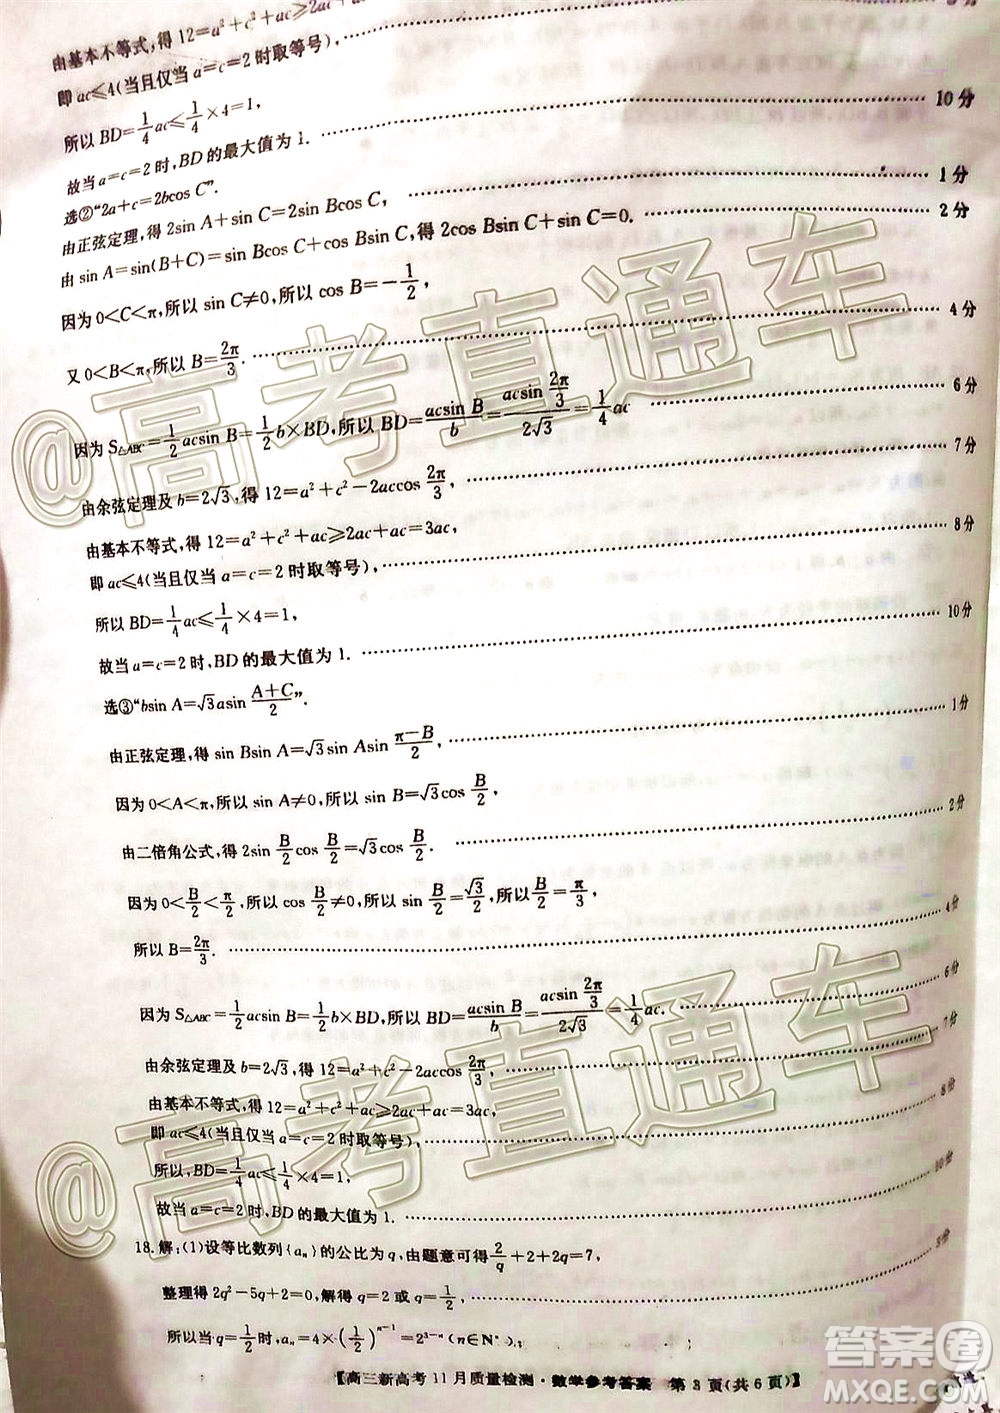 由基本不等式,得 12=a²+c²+ac≥2ac+ac=3ac,
即 ac≤4(当且仅当 a=c=2 时取等号),
所以 BD=1/4 ac≤1/4×4=1, 10 分
故当 a=c=2 时,BD 的最大值为 1.
选②“2a+c=2bcos C”.
由正弦定理,得 2sin A+sin C=2sin Bcos C, 1 分
由 sin A=sin(B+C)=sin Bcos C+cos Bsin C,得 2cos Bsin C+sin C=0. 2 分
因为 0<C<π,所以 sin C≠0,所以 cos B=-1/2,
又 0<B<π,所以 B=2π/3. 4 分
因为 S△ABC=1/2 acsin B=1/2 b×BD,所以 BD=acsin B/b=acsin 2π/3/2√3=1/4 ac 6 分
由余弦定理及 b=2√3,得 12=a²+c²-2accos 2π/3, 7 分
由基本不等式,得 12=a²+c²+ac≥2ac+ac=3ac,
即 ac≤4(当且仅当 a=c=2 时取等号), 8 分
所以 BD=1/4 ac≤1/4×4=1,
故当 a=c=2 时,BD 的最大值为 1. 10 分
选③“bsin A=√3asin A+C/2”.
由正弦定理,得 sin Bsin A=√3sin Asin π-B/2, 1 分
因为 0<A<π,所以 sin A≠0,所以 sin B=√3cos B/2,
由二倍角公式,得 2sin B/2 cos B/2=√3cos B/2. 2 分
因为 0<B/2<π/2,所以 cos B/2≠0,所以 sin B/2=√3/2,所以 B/2=π/3,
所以 B=2π/3. 4 分
因为 S△ABC=1/2 acsin B=1/2 b×BD,所以 BD=acsin B/b=acsin 2π/3/2√3=1/4 ac. 6 分
由余弦定理及 b=2√3,得 12=a²+c²-2accos 2π/3, 7 分
由基本不等式,得 12=a²+c²+ac≥2ac+ac=3ac,
即 ac≤4(当且仅当 a=c=2 时取等号), 8 分
所以,BD=1/4 ac≤1/4×4=1,
故当 a=c=2 时,BD 的最大值为 1. 10 分
18.解:(1)设等比数列{aₙ}的公比为 q,由题意可得 2/q+2+2q=7,
整理得 2q²-5q+2=0,解得 q=2 或 q=1/2, 3 分
所以当 q=1/2 时,aₙ=4×(1/2)ⁿ⁻¹=2³⁻ⁿ(n∈N*);
【高三新高考 11 月质量检测·数学参考答案 第 3 页(共 6 页)】
@高考直通车
@高考直通车
答案圈
MXQE.COM